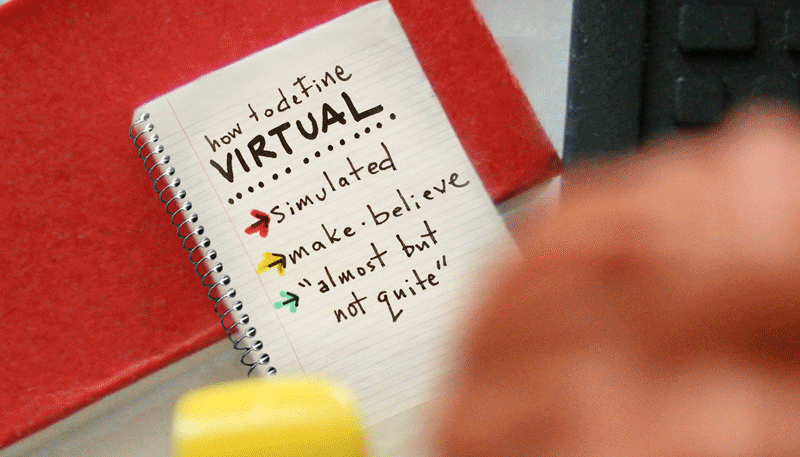 how to define
VIRTUAL
simulated
make-believe
"almost but
not quite"